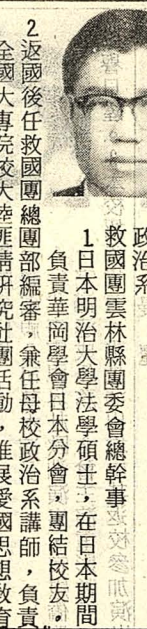 政治系
救國團雲林縣團委會總幹事
1日本明治大學法學碩士，在日本期間
負責華岡學會日本分會，團結校友。
2返國後任救國團總團部編審，兼任母校政治系講師，負責
全國大專院校大陸匪情研究社團活動，推展愛國思想教育